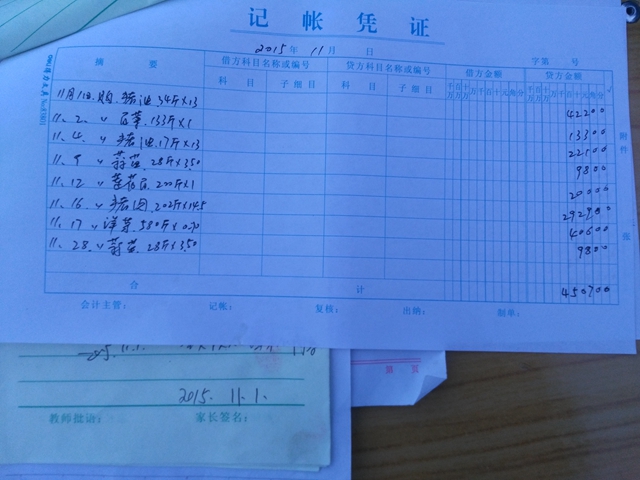 记帐凭证
2015年 11月 日
字第 号
摘要 借方科目名称或编号 贷方科目名称或编号 借方金额 贷方金额 √
科目 子细目 科目 子细目 千百十万千百十元角分 千百十万千百十元角分
11月1日.购.猪油 34斤×13 42200
11. 2. 〃 133斤×1 13300
11. 4. 〃 猪油.17斤×13 22100
11. 9 〃 蒜苗.28斤×3.50 9800
11. 12 〃 200斤×1 20000
11. 16. 〃 猪肉.202斤×14.5 292900
11. 17 〃 洋芋.580斤×0.70 40600
11. 28. 〃 蒜苗.28斤×3.50 9800
合计 450700
附件 张
会计主管: 记帐: 复核: 出纳: 制单:
11.1.
第 页
2015. 11.1.
教师批论: 家长签名: